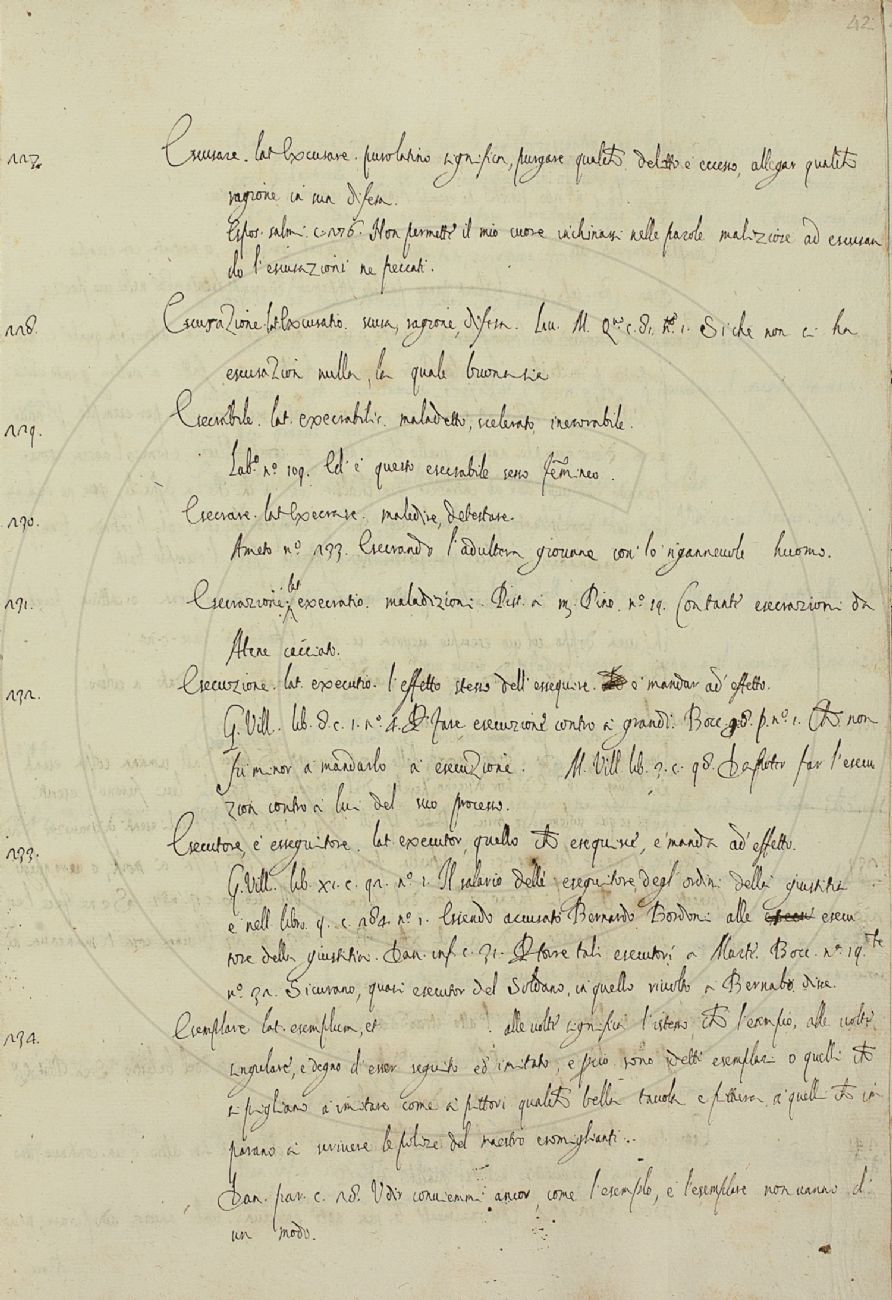 42
117. Escusare. lat. Excusare. puro latino significa, purgare qualche delitto e eccesso, allegar qualche
ragione in sua difesa.
Espos. salm. c. 176. Non permette il mio cuore inchinarsi nelle parole maliziose ad escusan
do l'escusazioni ne peccati.
118. Escusazione lat. Excusatio. scusa, ragione, difesa. Liu. M. c. 8. 1. Si che non ci ha
escusazion nulla, la quale buona sia
119. Esecrabile. lat. execrabilis. maladetto, scelerato, inesorabile.
Lab.º nº 109. Ed è questo esecrabile sesso femineo.
130. Esecrare. lat. Execrare. maledire, detestare.
Ameto nº 133. Esecrando l'adultera giovane con lo ngannevole huomo.
131. Esecrazione. lat execratio. maladizioni. Pist. a m. Pino. nº 19. Con tante esecrazioni da
Atene cacciato.
132. Esecuzione. lat. executio. l'effetto stesso dell'esseguire. e mandar ad effetto.
G. Vill. lib. 8. c. 1. nº 4. P fare esecuzione contro a grandi. Bocc. g. 8. p. nº 1. Che non
fu minor a mandarlo a esecuzione. M. Vill. lib. 3. c. 98. Da poter far l'esecu
zion contro a lui del suo processo.
133. Esecutore, e esseguitore. lat. executor, quello che esequisce, e manda ad effetto.
G. Vill. lib. xi. c. 92. nº 1. Il salario delle eseguitore degl'ordini della giustitia
e nell libro. 9. c. 184. nº 1. Essendo accusato Bernardo Bordoni alle esecu
tore della giustitia. Dan. inf. c. 31. P torre tali esecutori a Marte. Bocc. nº 19.
nº 32. Sicurano, quasi esecutor del Soldano, in quello rivolto a Bernabò dise.
134. Esemplare lat. esemplum, et . alle volte significa l'istesso che l'esempio, alle volte
singulare, e degno d'esser seguito ed imitato, e perciò sono detti esemplari o quelli che
si pigliano a imitare come a pittori qualche bella tavola e pittura, a quelli che im
parano a scrivere le polize del maestro e somiglianti..
Dan. par. c. 28. Udir conviemmi ancor, come l'esemplo, e l'esemplare non vanno d'
un modo.